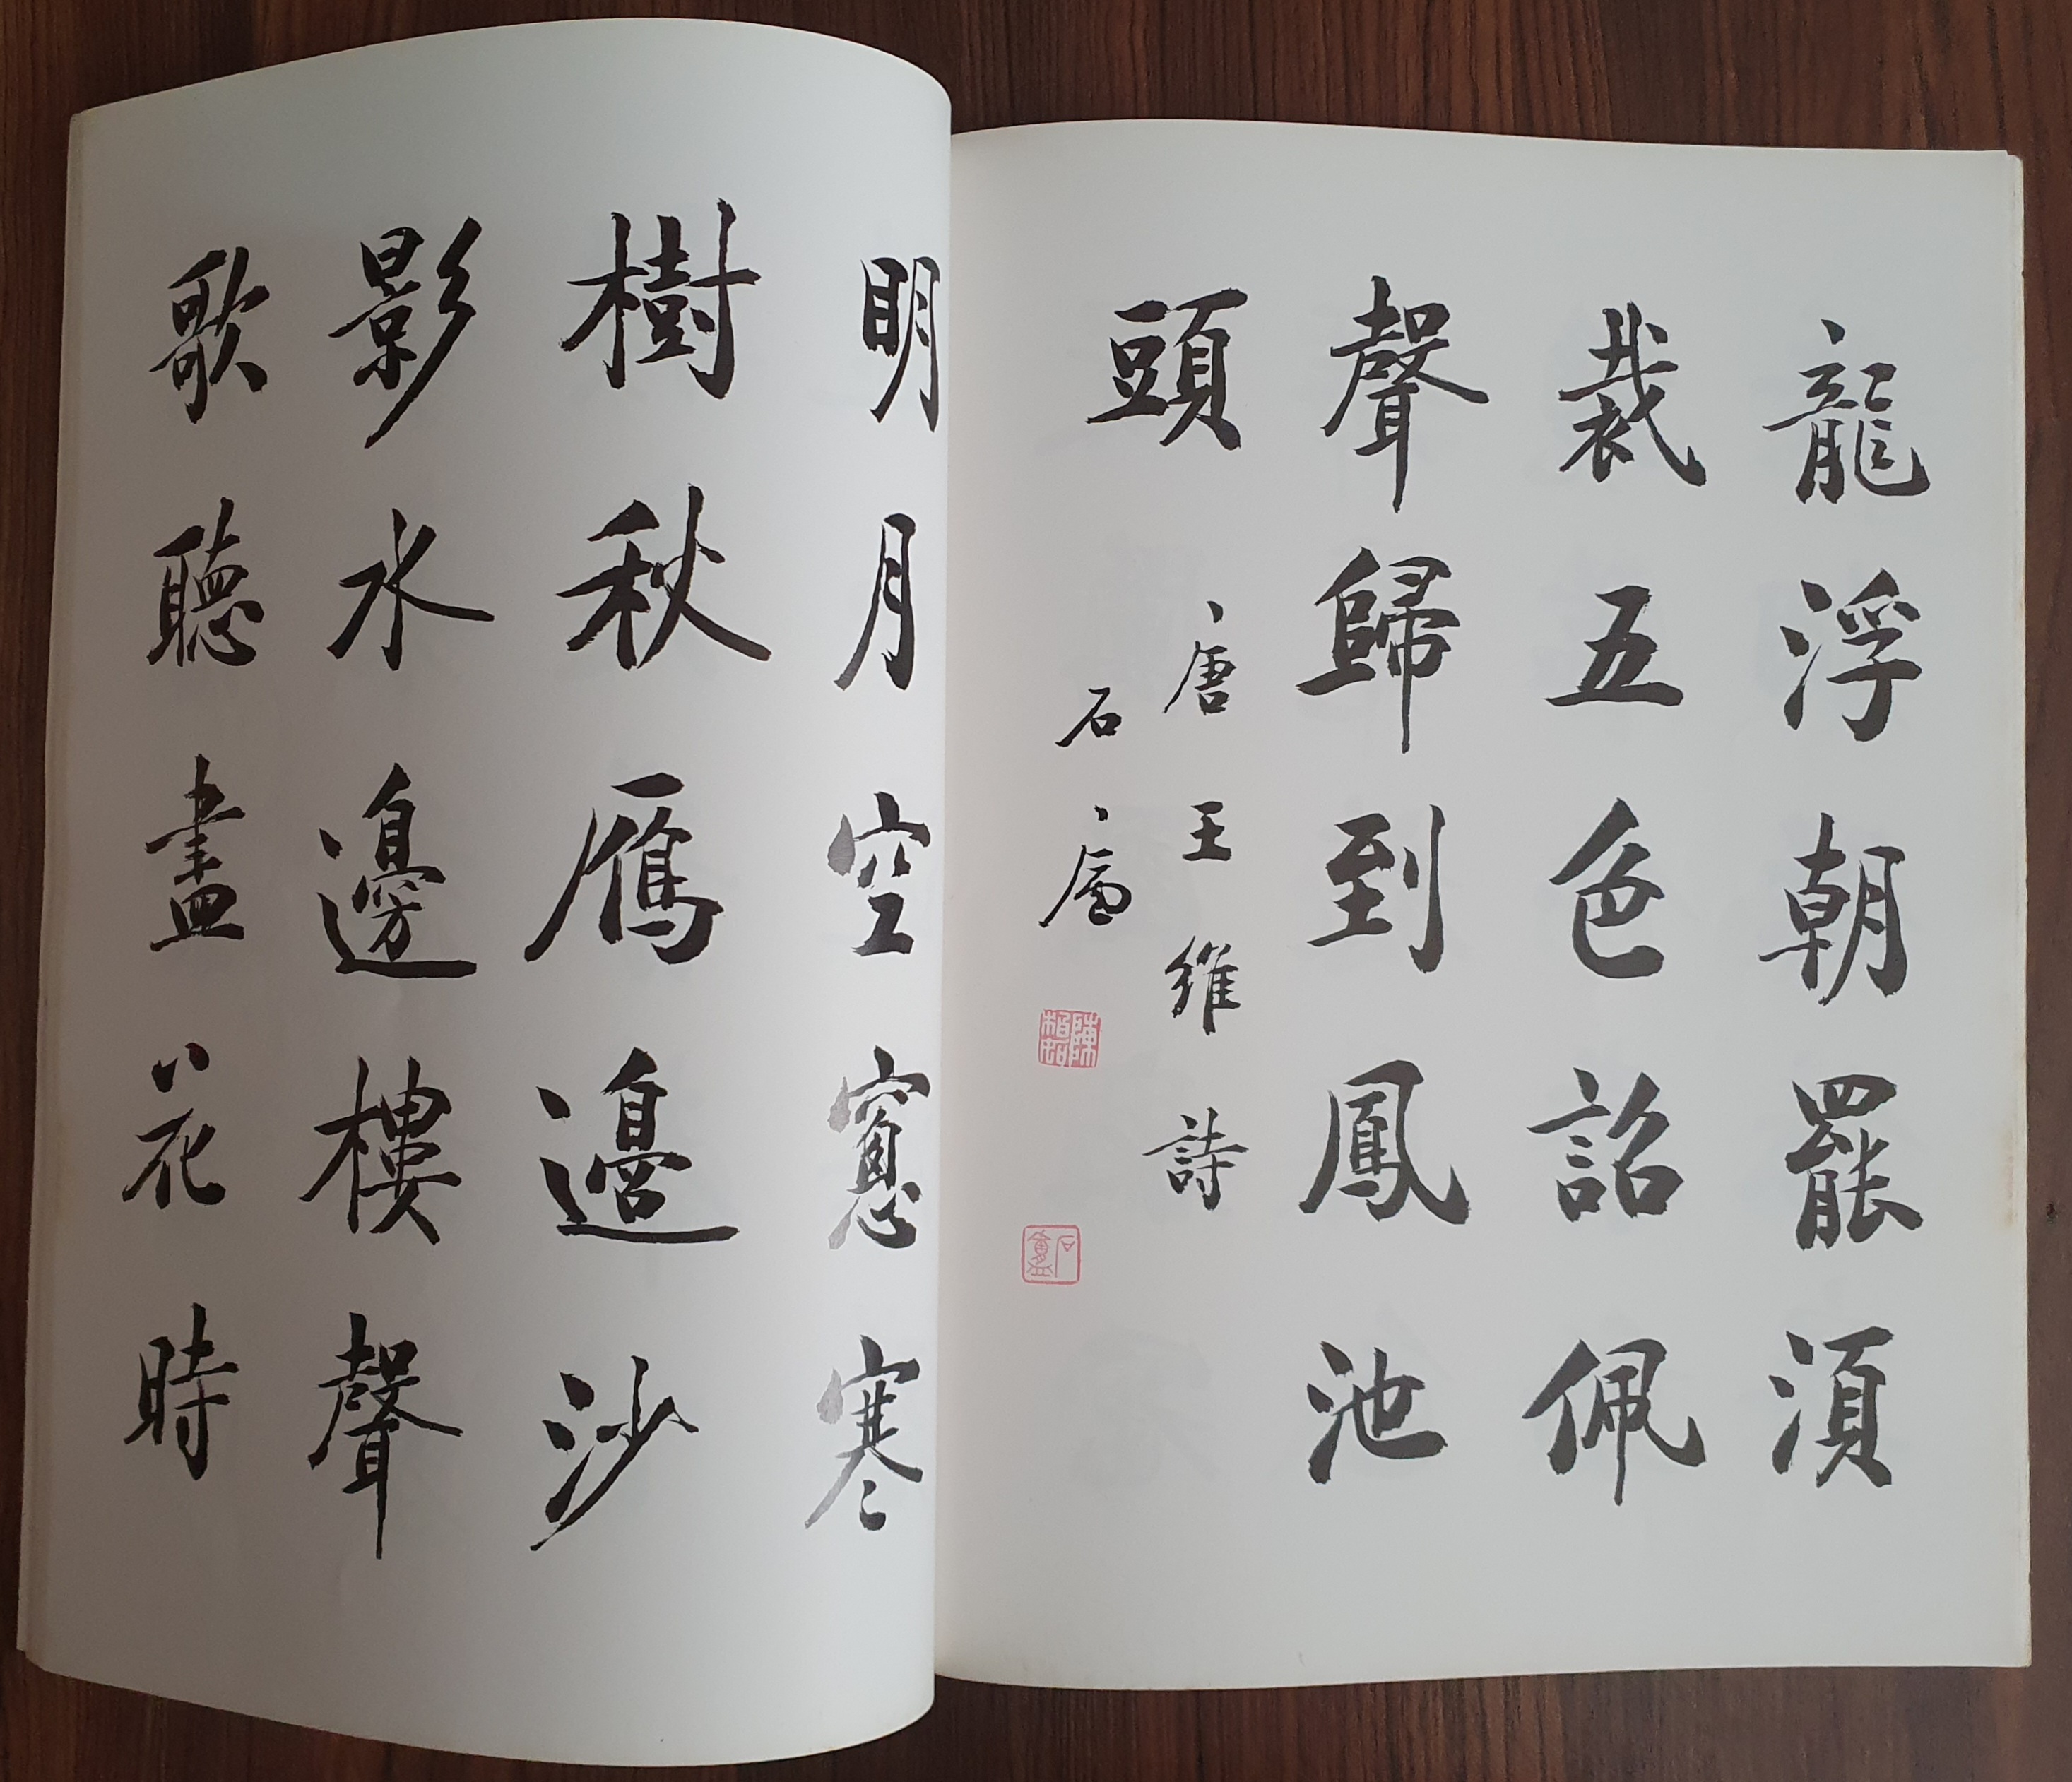 龍浮朝罷須
裁五色詔佩
聲歸到鳳池
頭
唐王維詩
石廬
陳
石盦
明月空窻寒
樹秋雁邊沙
影水邊樓聲
歌聽盡花時